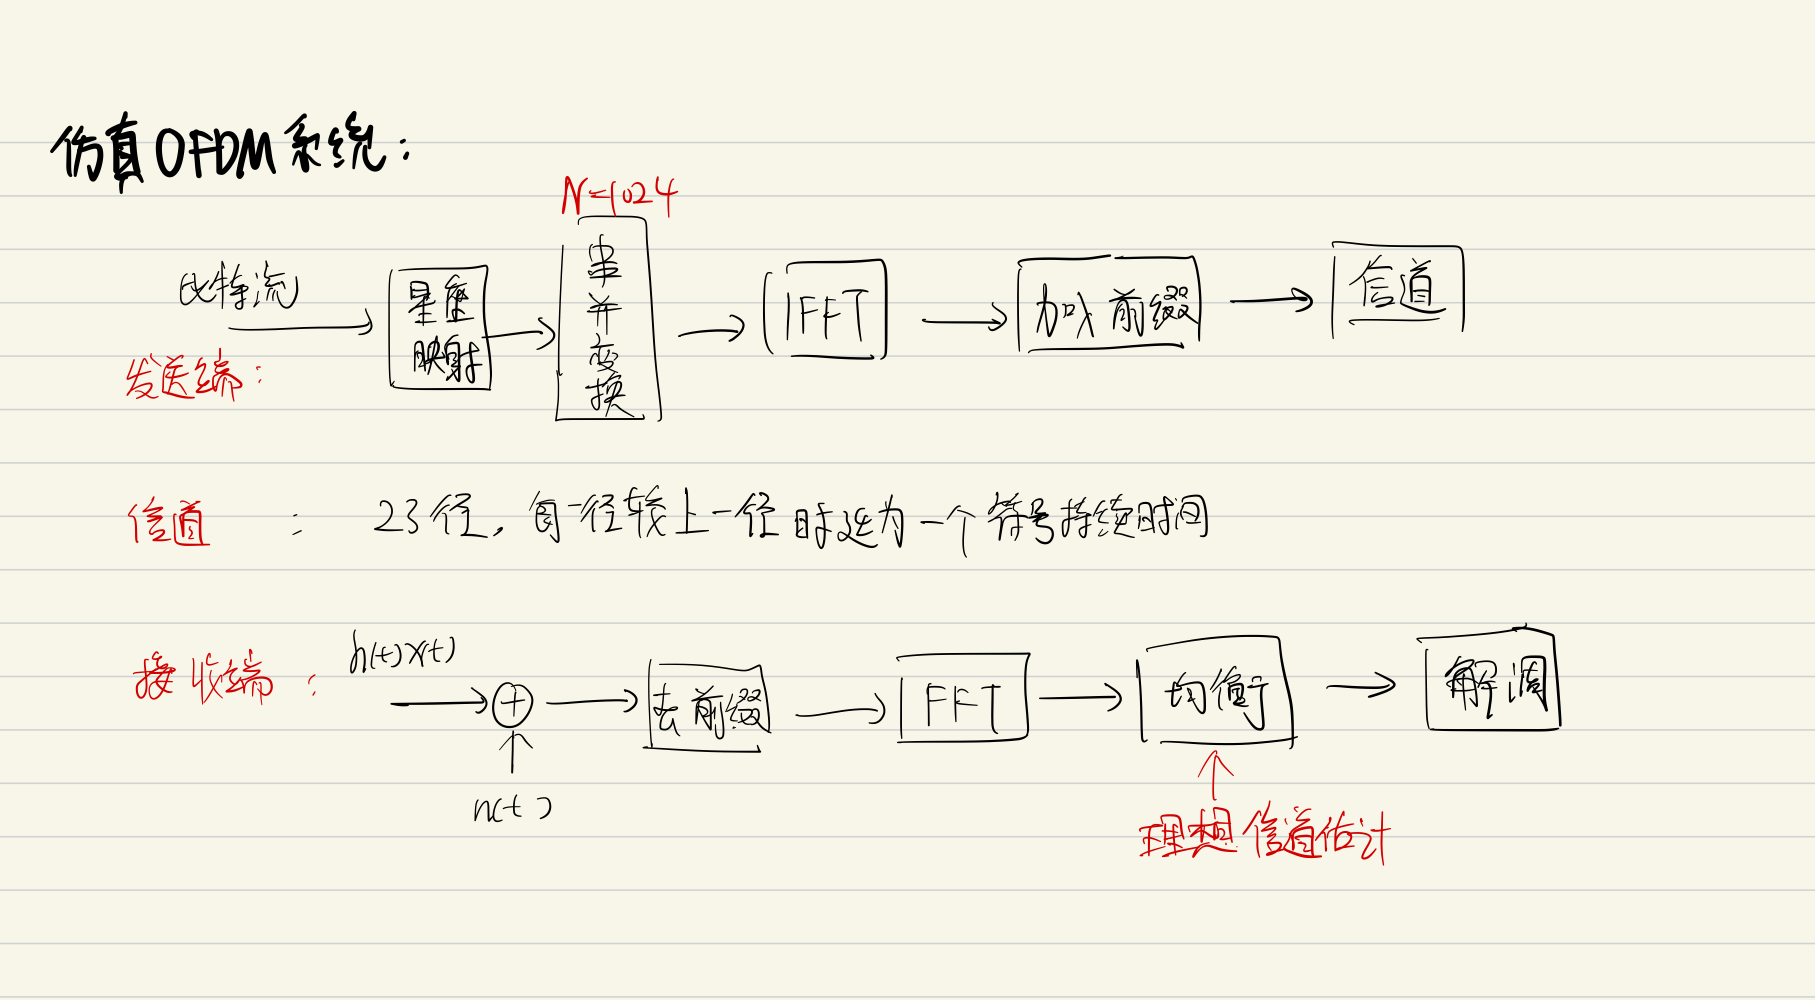 仿真OFDM系统:
N=1024
比特流
星座
映射
串
并
变
换
IFFT
加前缀
信道
发送端:
信道 : 23径, 每一径较上一径时延为一个符号持续时间
接收端:
h(t)x(t)
+
n(t)
去前缀
FFT
均衡
解调
理想信道估计